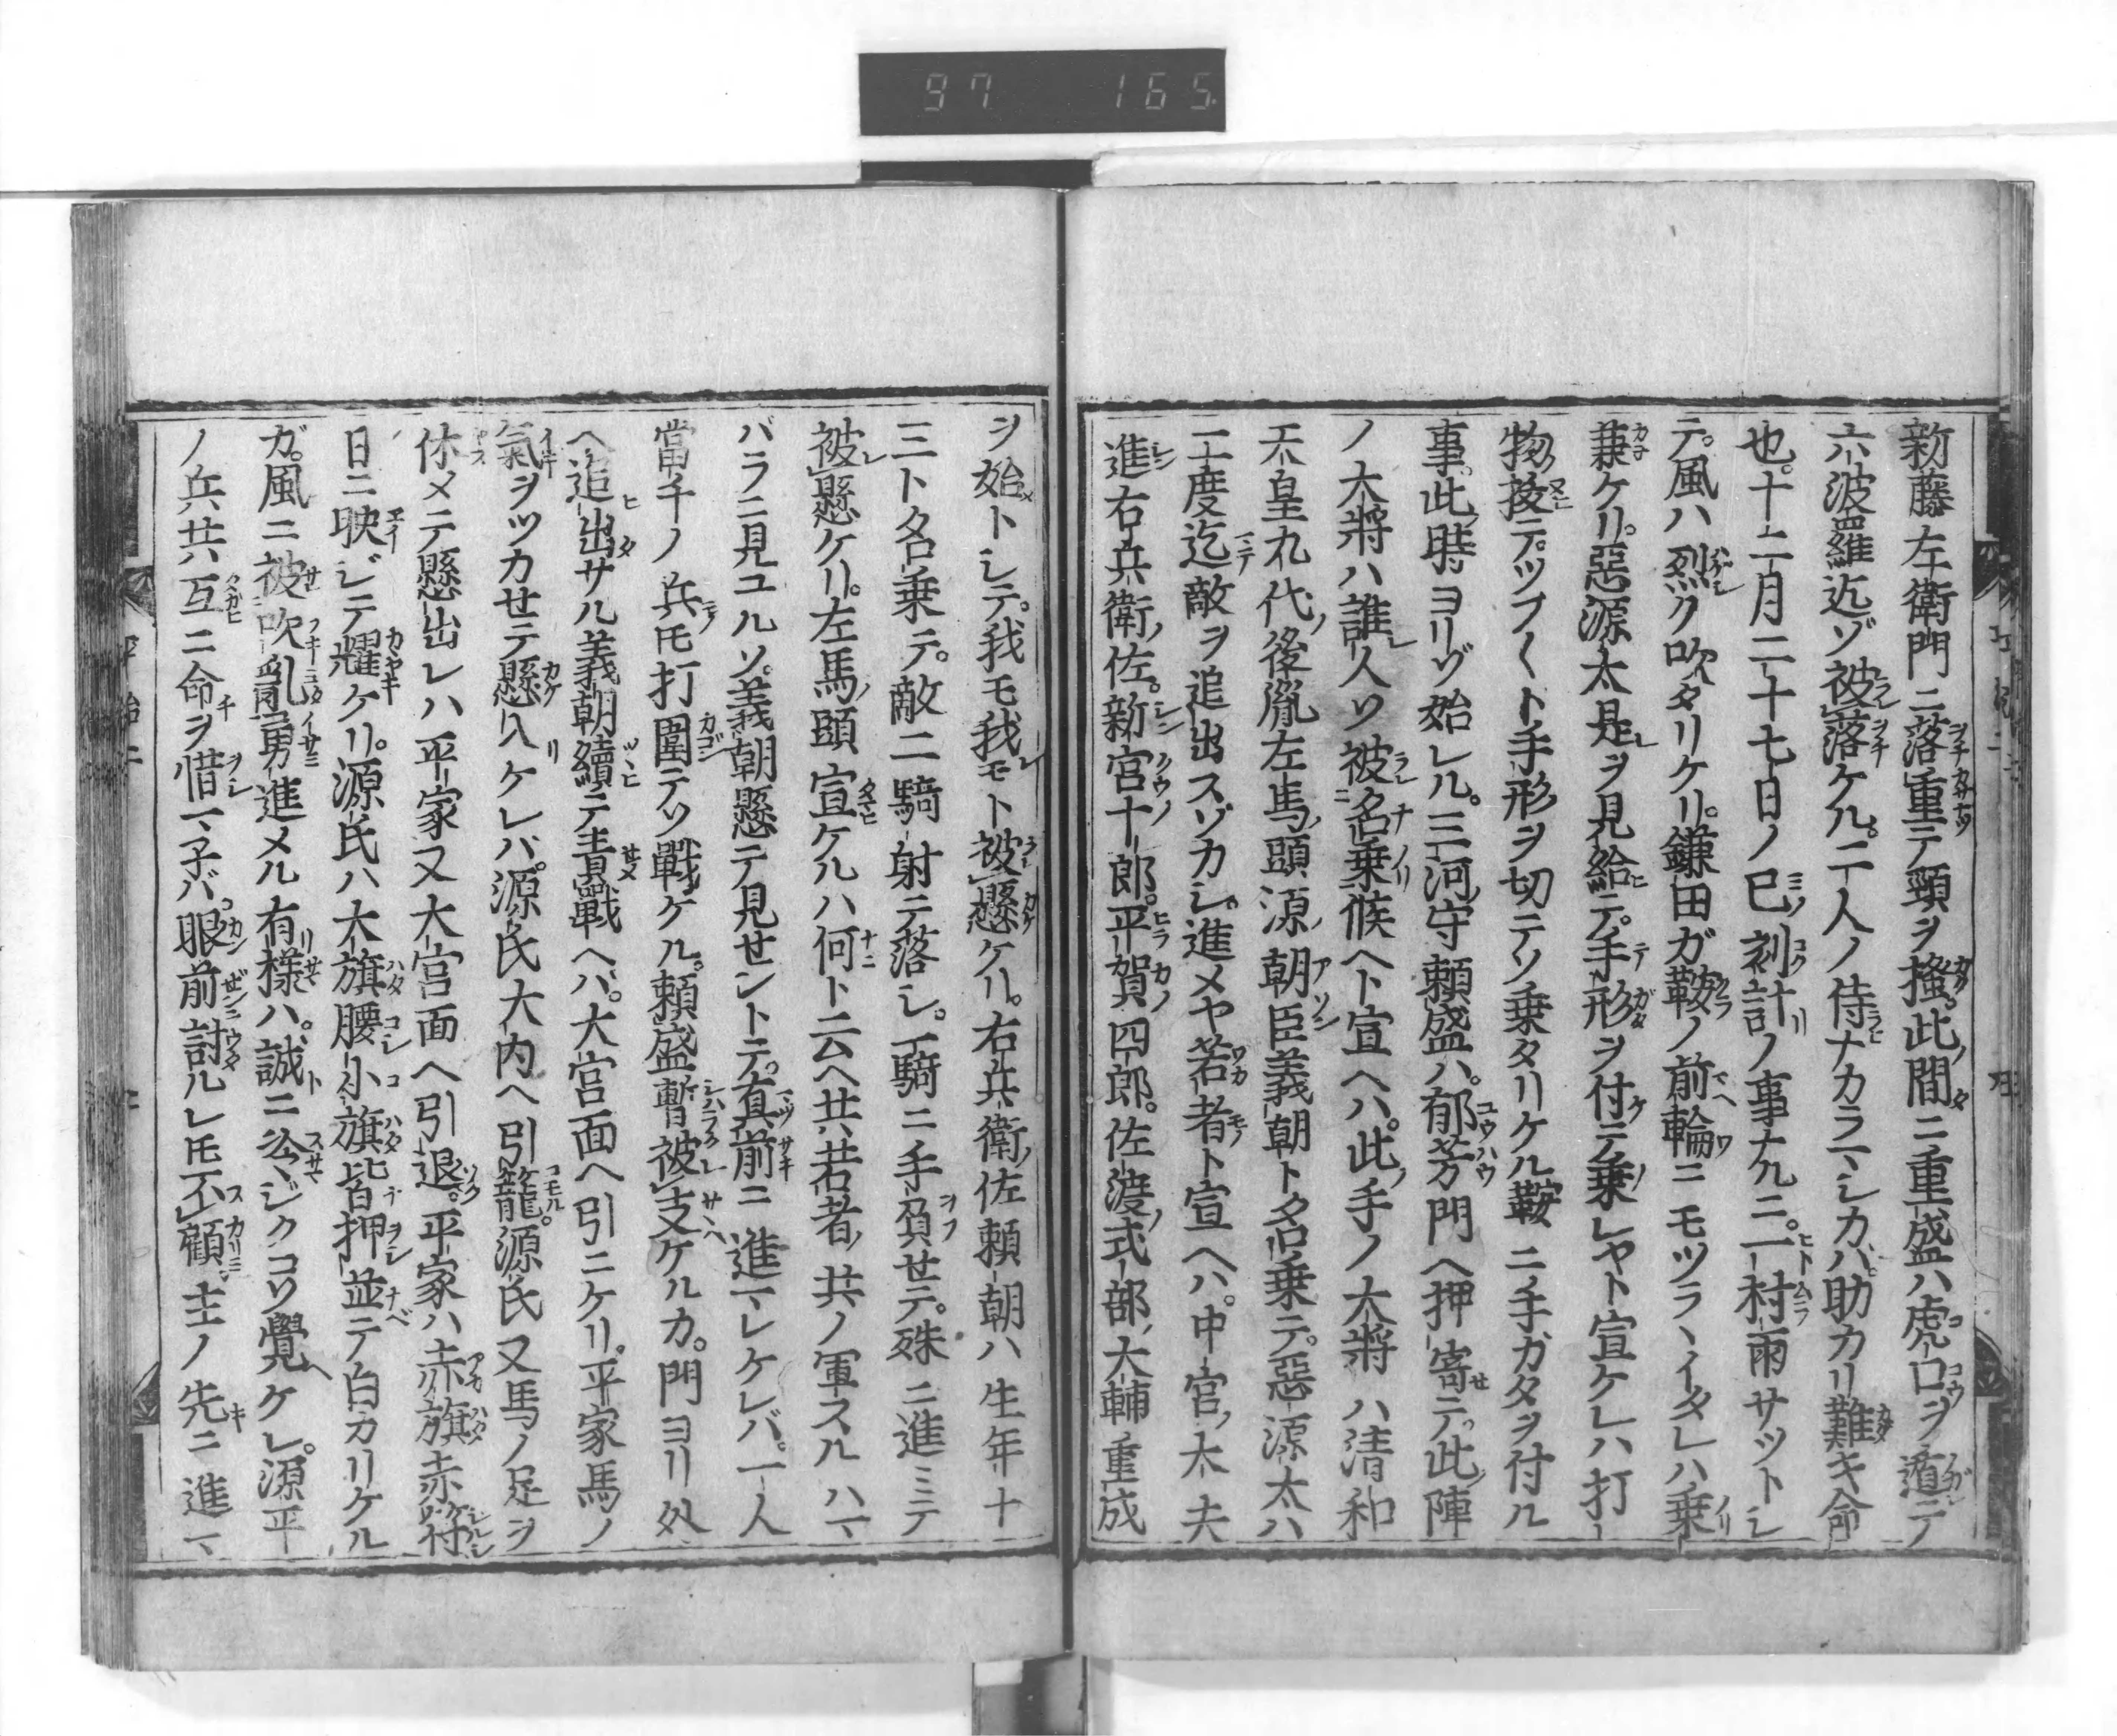 97 165
新藤左衛門ニ落重テ頸ヲ搔。此間ニ重盛ハ虎口ヲ遁テ
六波羅近ゾ被落ケル。二人ノ侍ナカラマシカバ。助カリ難キ命
也。十二月二十七日ノ巳刻計ノ事ナルニ。一村雨サツトシ
テ。風ハ烈ク吹タリケリ。鎌田ガ鞍ノ前輪ニモツラヽイタレハ乗
兼ケリ。惡源太是ヲ見給ヒテ。手形ヲ付テ乗レヤト宣ケレハ打
物抜テツブ〱ト手形ヲ切テソ乗タリケル鞍ニ手ガタヲ付ル
事。此時ヨリゾ始レル。三河守頼盛ハ。郁芳門ヘ押寄テ。此陣
ノ大將ハ誰人ソ被名乗候ヘト宣ヘハ。此手ノ大將ハ清和
天皇九代ノ後胤左馬頭源朝臣義朝ト名乗テ。惡源太ハ
二度迄敵ヲ追出スゾカシ。進メヤ若者ト宣ヘハ。中宮大夫
進右兵衛佐。新宮十郎。平賀四郎。佐渡式部大輔重成
ヲ始トシテ。我モ我モト被懸ケル。右兵衛佐頼朝ハ生年十
三ト名乗テ。敵二騎射テ落シ。一騎ニ手負せテ。殊ニ進ミテ
被懸ケリ。左馬頭宣ケルハ何ト云ヘ共若者ノ共ノ軍スルハマ
バラニ見ユルソ。義朝懸テ見せントテ。真前ニ進マレケレバ。一人
當千ノ兵𪜈打圍テソ戰ケル。頼盛暫被支ケルカ。門ヨリ外
ヘ追出サル義朝續テ責戰ヘバ。大宮面ヘ引ニケリ。平家馬ノ
氣ヲツカせテ懸入ケレバ。源氏大内ヘ引籠。源氏又馬ノ足ヲ
休メテ懸出レハ平家又大宮面ヘ引退。平家ハ赤旗赤符
日ニ映ジテ耀ケリ。源氏ハ大旗腰小旗皆押並テ白カリケル
ガ。風ニ被吹乱勇進メル有様ハ。誠ニ冷ジクコソ覺ケレ。源平
ノ兵共互ニ命ヲ惜マネバ。眼前討ルレ𪜈不顧。主ノ先ニ進マ